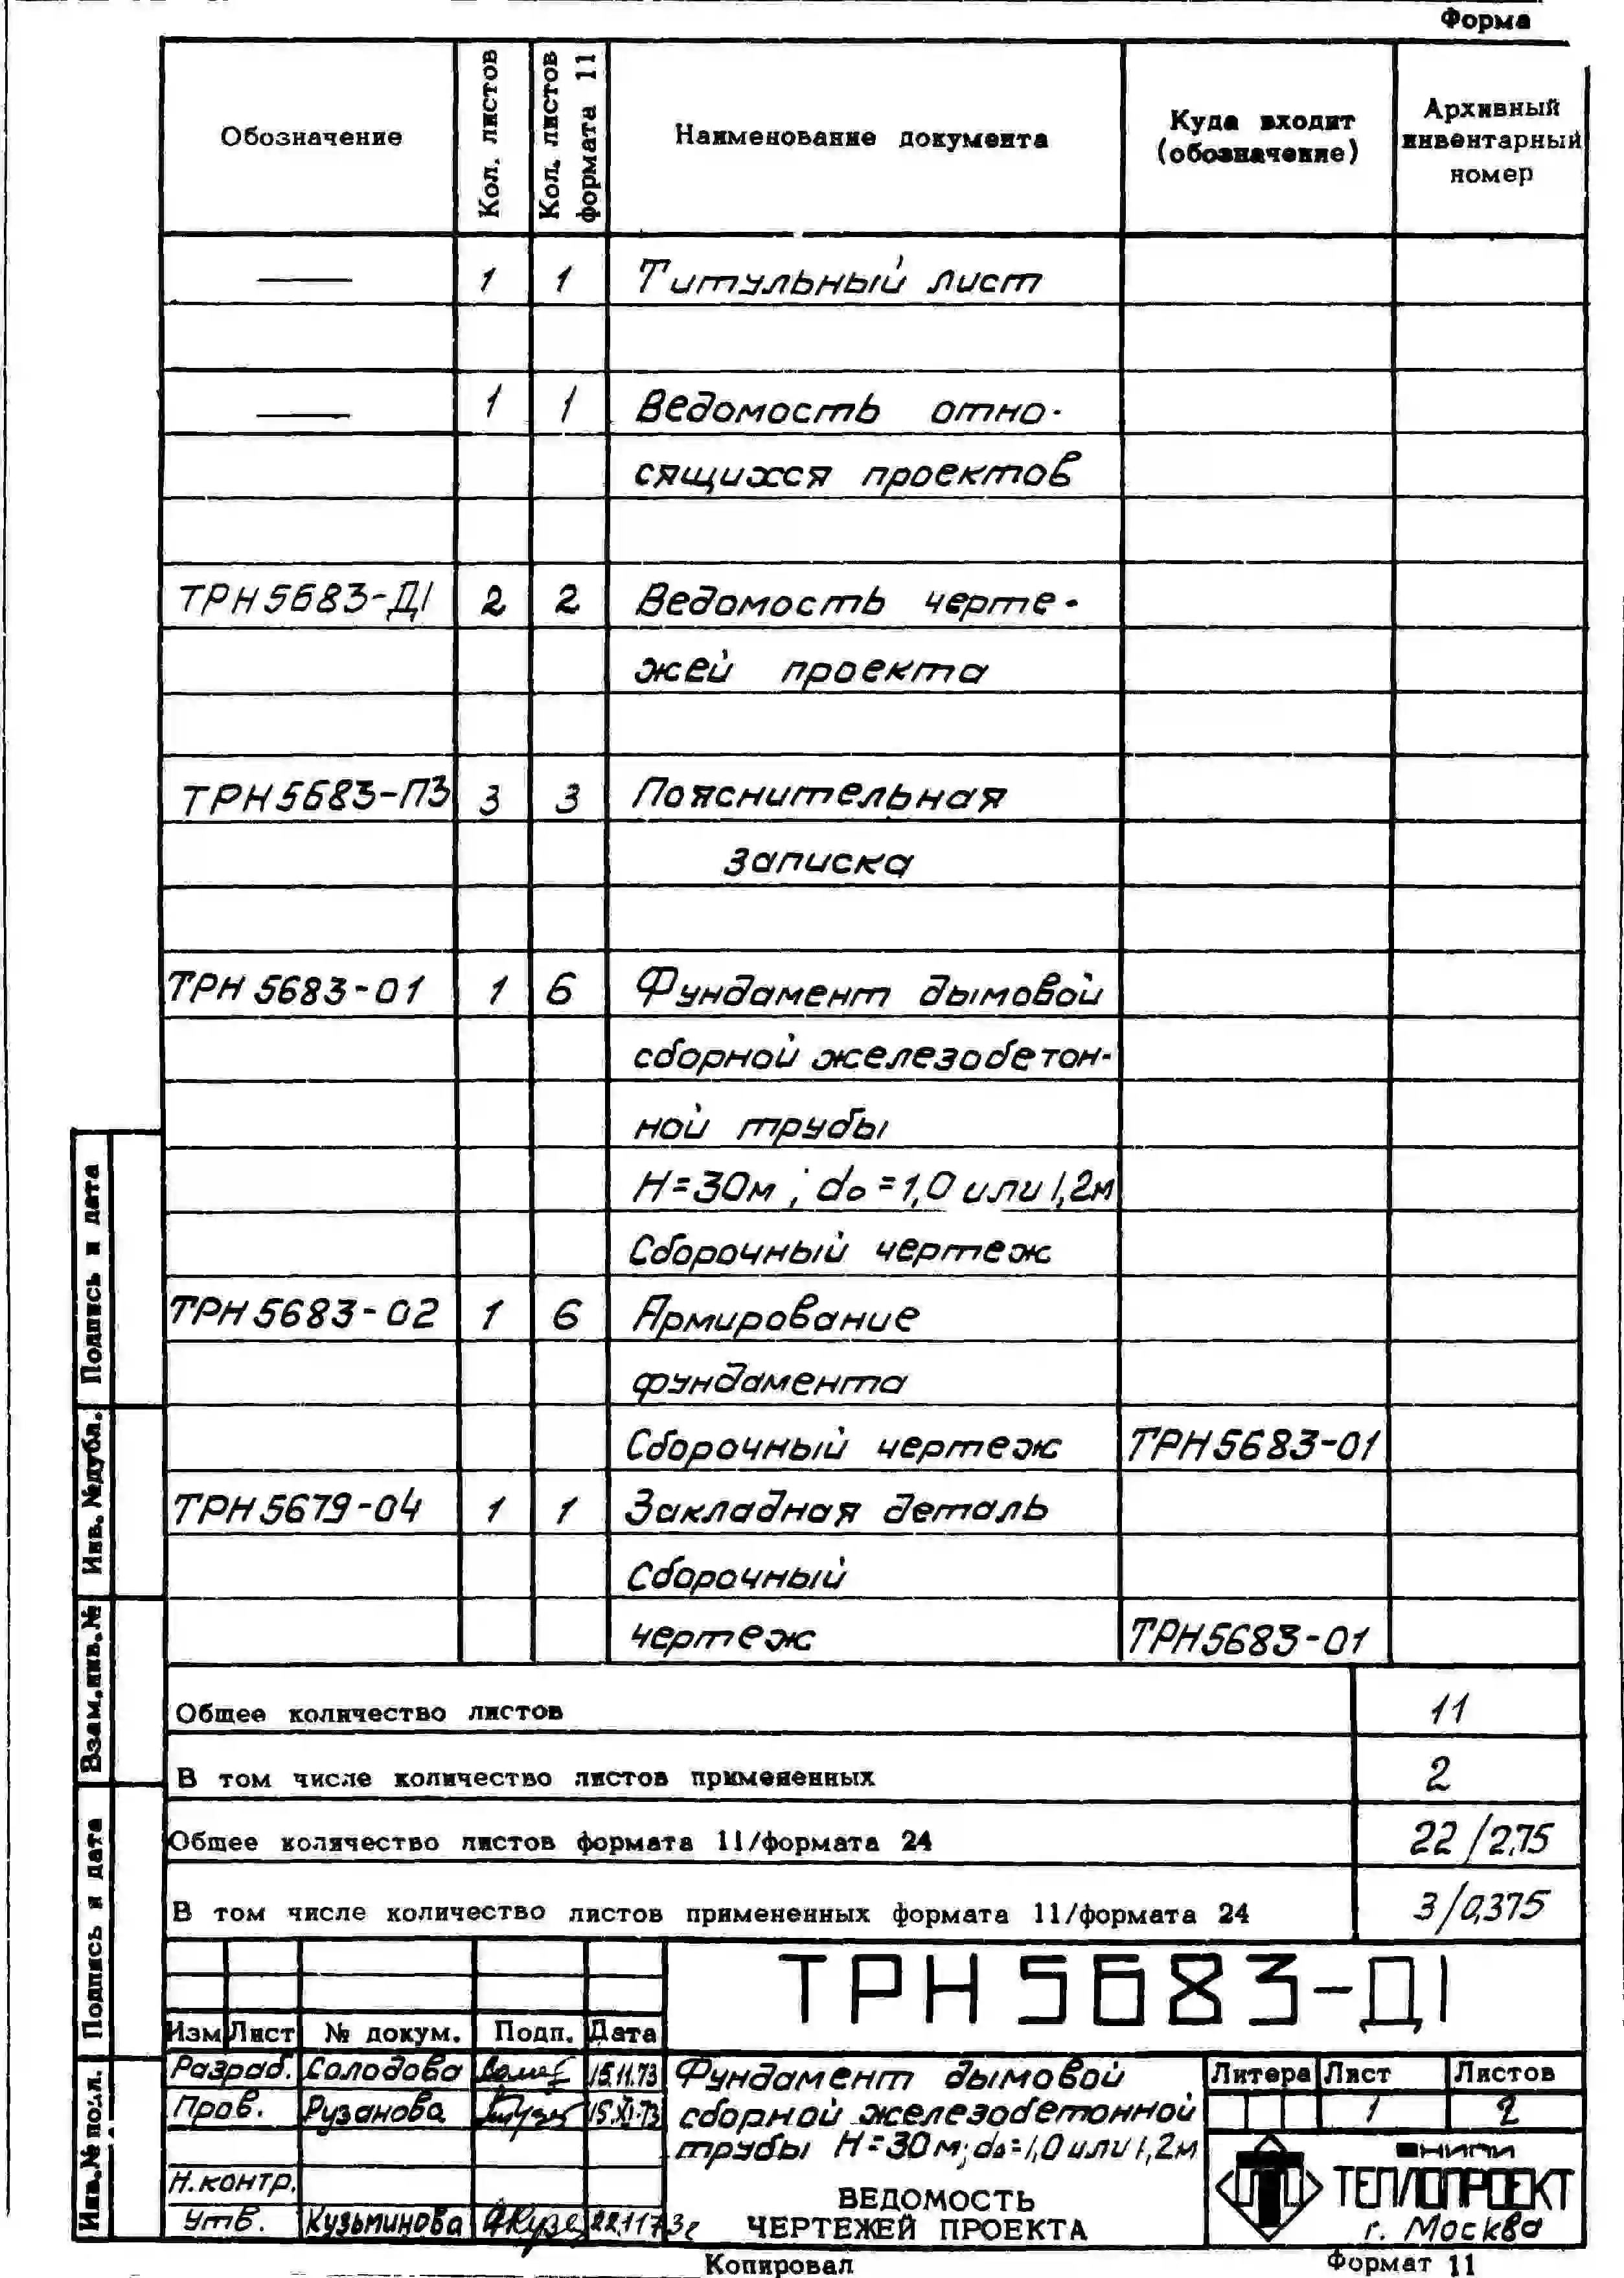 Форма
Обозначение Кол. листов Кол. листов формата 11 Наименование документа Куда входит (обозначение) Архивный инвентарный номер
— 1 1 Титульный лист
— 1 1 Ведомость отно-
сящихся проектов
ТРН5683-Д1 2 2 Ведомость черте-
жей проекта
ТРН5683-ПЗ 3 3 Пояснительная
записка
ТРН 5683-01 1 6 Фундамент дымовой
сборной железобетон-
ной трубы
Н=30м; do=1,0 или 1,2м
Сборочный чертеж
ТРН 5683-02 1 6 Армирование
фундамента
Сборочный чертеж ТРН5683-01
ТРН 5679-04 1 1 Закладная деталь
Сборочный
чертеж ТРН5683-01
Общее количество листов 11
В том числе количество листов примененных 2
Общее количество листов формата 11/формата 24 22/2,75
В том числе количество листов примененных формата 11/формата 24 3/0,375
Подпись и дата
Инв. №дубл.
Взам.инв.№
Подпись и дата
Инв.№ подл.
ТРН 5683-Д1
Изм Лист № докум. Подп. Дата
Разраб. Солодова 15.11.73
Пров. Рузанова 15.XI.73
Н.контр.
Утв. Кузьминова 22.11.73г
Фундамент дымовой
сборной железобетонной
трубы Н=30м; do=1,0 или 1,2м
ВЕДОМОСТЬ
ЧЕРТЕЖЕЙ ПРОЕКТА
Литера Лист Листов
1 2
ВНИПИ
ТЕПЛОПРОЕКТ
г. Москва
Копировал Формат 11